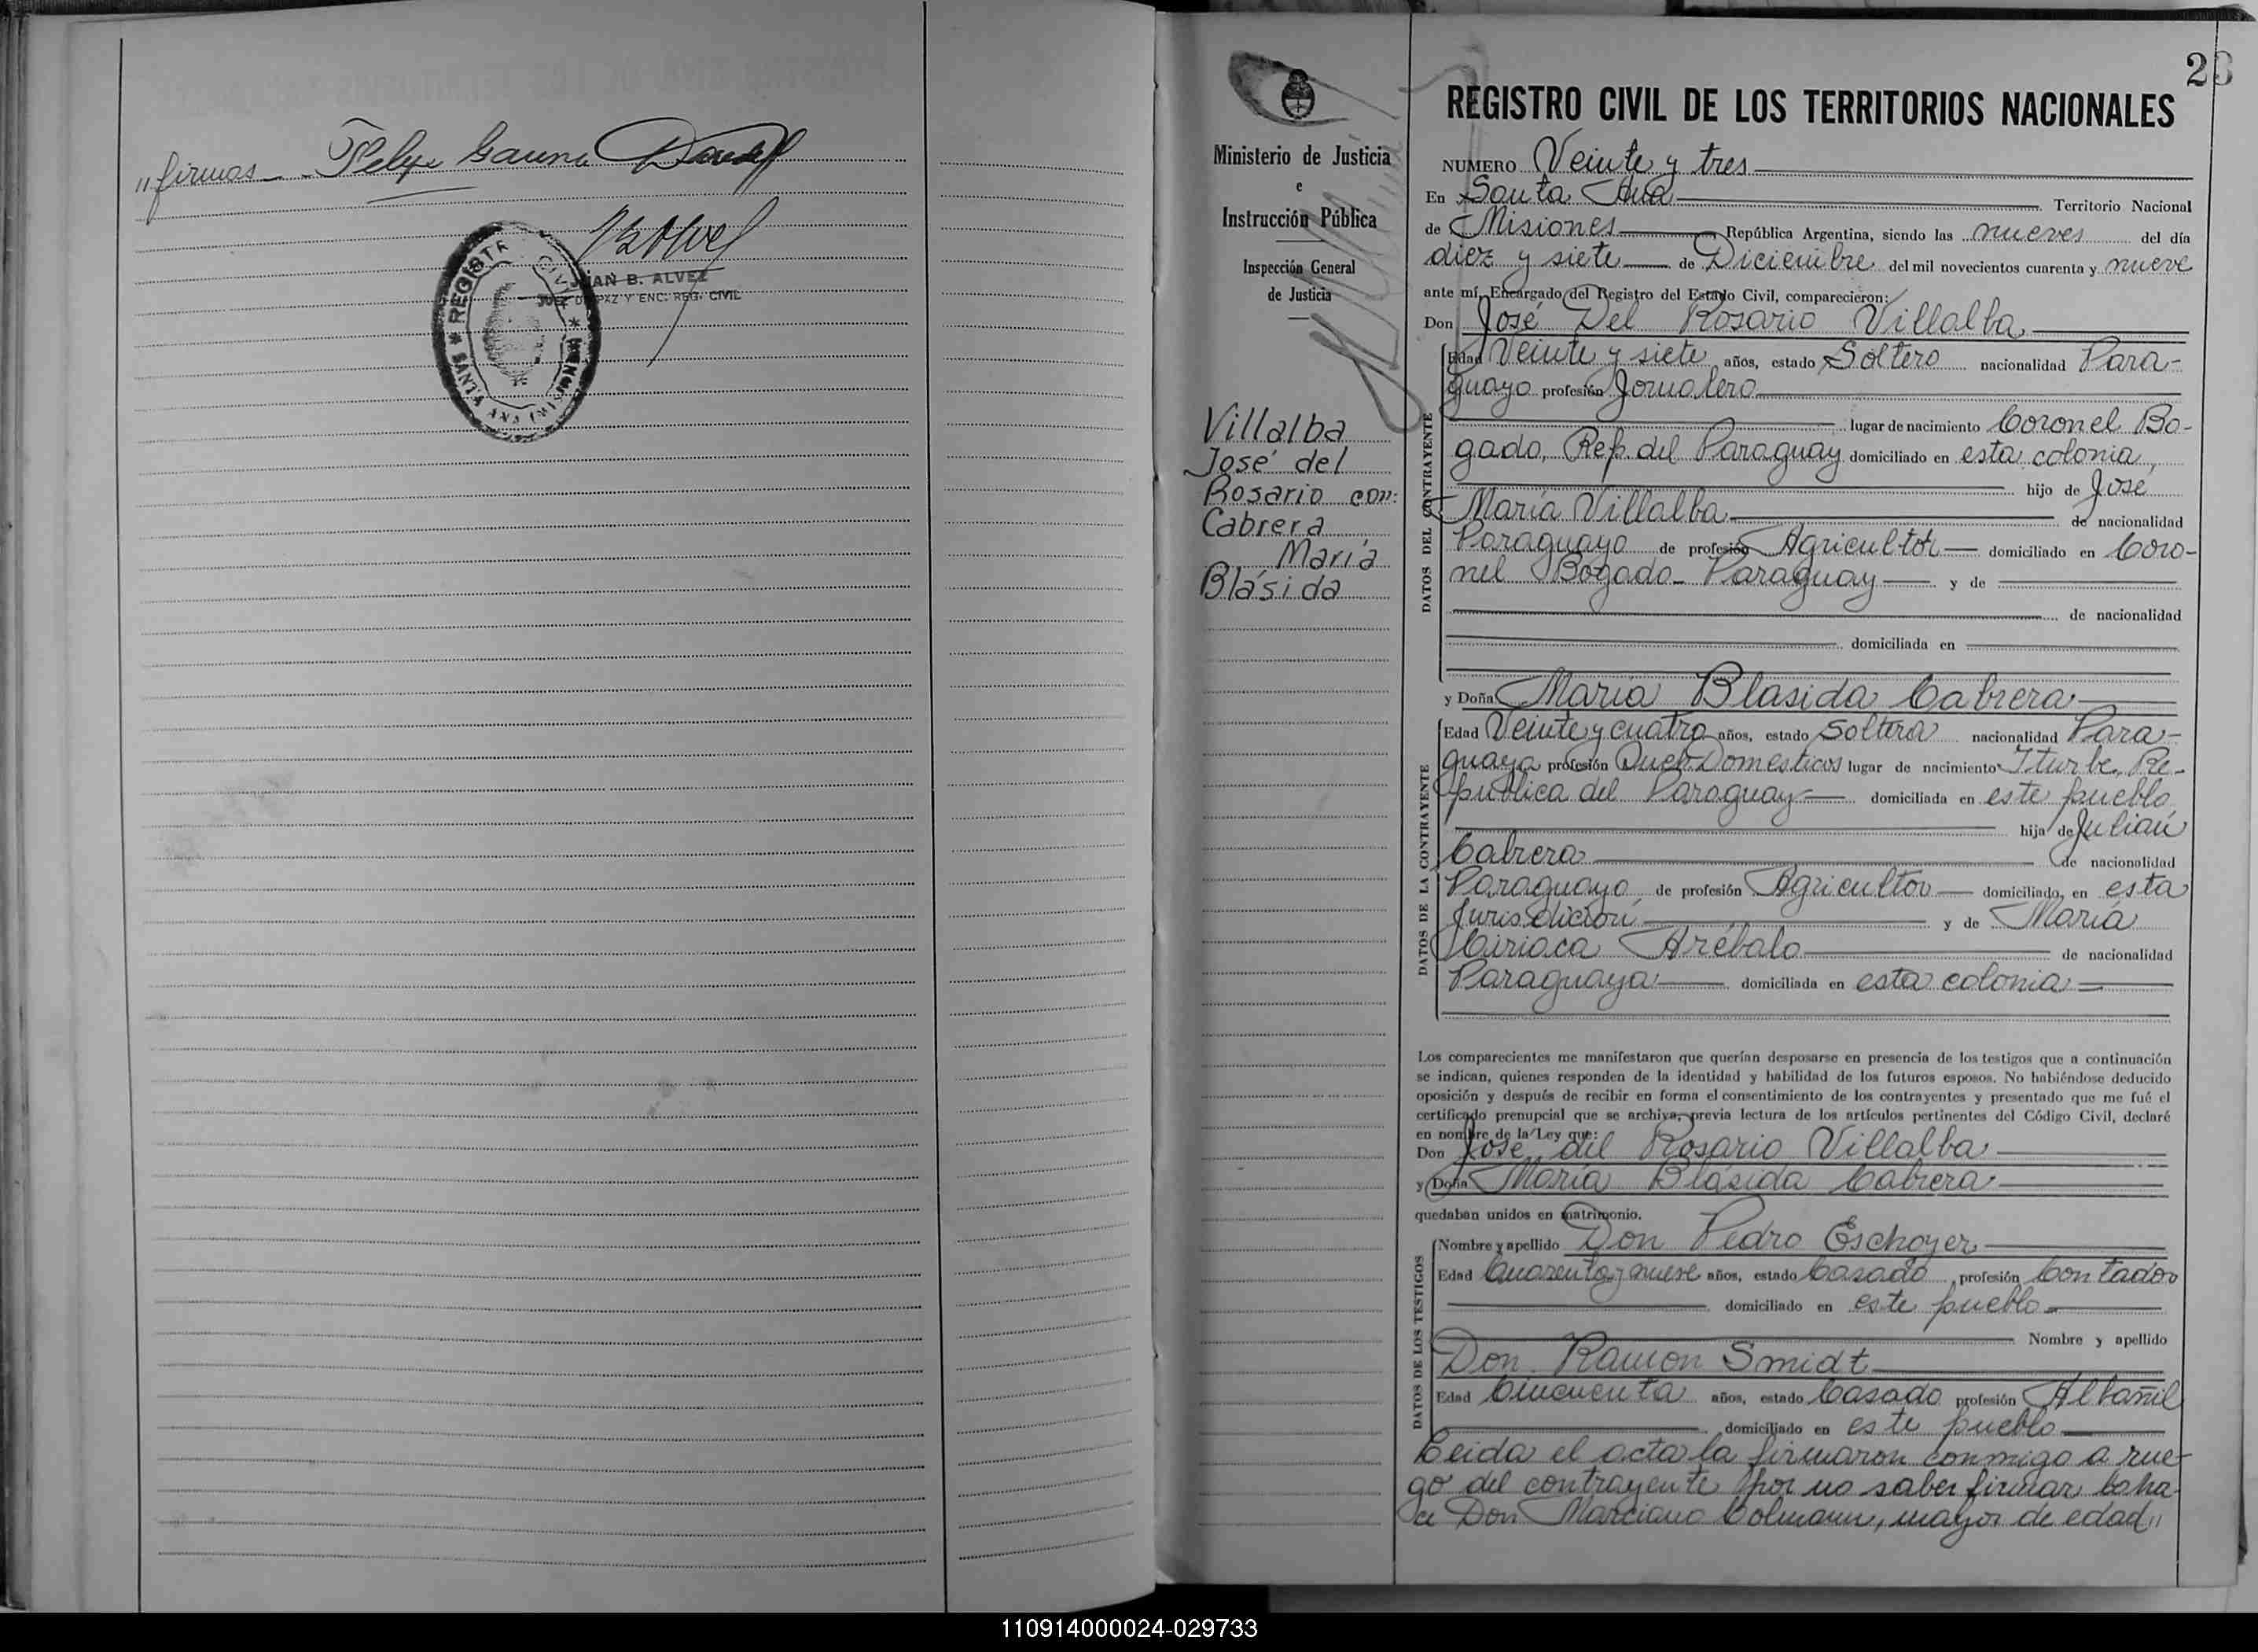 "firmas_
JUAN B. ALVEZ
JUEZ DE PAZ Y ENC. REG. CIVIL
REGISTRO CIVIL
SANTA ANA (MISIONES)
23
Ministerio de Justicia
e
Instrucción Pública
Inspección General
de Justicia
Villalba
José del
Rosario con:
Cabrera
María
Blásida
REGISTRO CIVIL DE LOS TERRITORIOS NACIONALES
NUMERO Veinte y tres
En Santa Ana Territorio Nacional
de Misiones República Argentina, siendo las nueves del día
diez y siete de Diciembre del mil novecientos cuarenta y nueve
ante mí, Encargado del Registro del Estado Civil, comparecieron:
Don José Del Rosario Villalba
DATOS DEL CONTRAYENTE
Edad Veinte y siete años, estado Soltero nacionalidad Para-
guayo profesión Jornalero
lugar de nacimiento Coronel Bo-
gado, Rep. del Paraguay domiciliado en esta colonia,
hijo de José
María Villalba de nacionalidad
Paraguayo de profesión Agricultor domiciliado en Coro-
nel Bogado_ Paraguay y de
de nacionalidad
domiciliada en
y Doña María Blasida Cabrera
DATOS DE LA CONTRAYENTE
Edad Veinte y cuatro años, estado Soltera nacionalidad Para-
guaya profesión Domesticos lugar de nacimiento Iturbe, Re-
publica del Paraguay domiciliada en este pueblo
hija de Julian
Cabrera de nacionalidad
Paraguayo de profesión Agricultor domiciliado, en esta
Jurisdicion y de María
Ciriaca Arébalo de nacionalidad
Paraguaya domiciliada en esta colonia
Los comparecientes me manifestaron que querían desposarse en presencia de los testigos que a continuación
se indican, quienes responden de la identidad y habilidad de los futuros esposos. No habiéndose deducido
oposición y después de recibir en forma el consentimiento de los contrayentes y presentado que me fué el
certificado prenupcial que se archiva, previa lectura de los artículos pertinentes del Código Civil, declaré
en nombre de la Ley que:
Don José del Rosario Villalba
y Doña María Blásida Cabrera
quedaban unidos en matrimonio.
DATOS DE LOS TESTIGOS
Nombre y apellido Don Pedro Eschoyer
Edad Cuarenta y nueve años, estado Casado profesión Contador
domiciliado en este pueblo
Nombre y apellido
Don Ramon Smidt
Edad Cincuenta años, estado Casado profesión Albañil
domiciliado en este pueblo
Leida el acta la firmaron conmigo a rue-
go del contrayente por no saber firmar lo ha-
ce Don Marciano Colmann, mayor de edad"
110914000024-029733